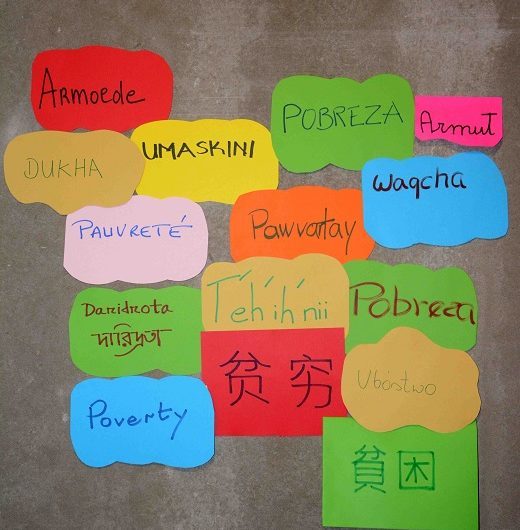 Armoede
POBREZA
Armut
DUKHA
UMASKINI
Waqcha
PAUVRETÉ
Pawvartay
Daridrota
দারিদ্রতা
Téh'ih'nii
Pobreza
贫穷
Ubóstwo
Poverty
貧困